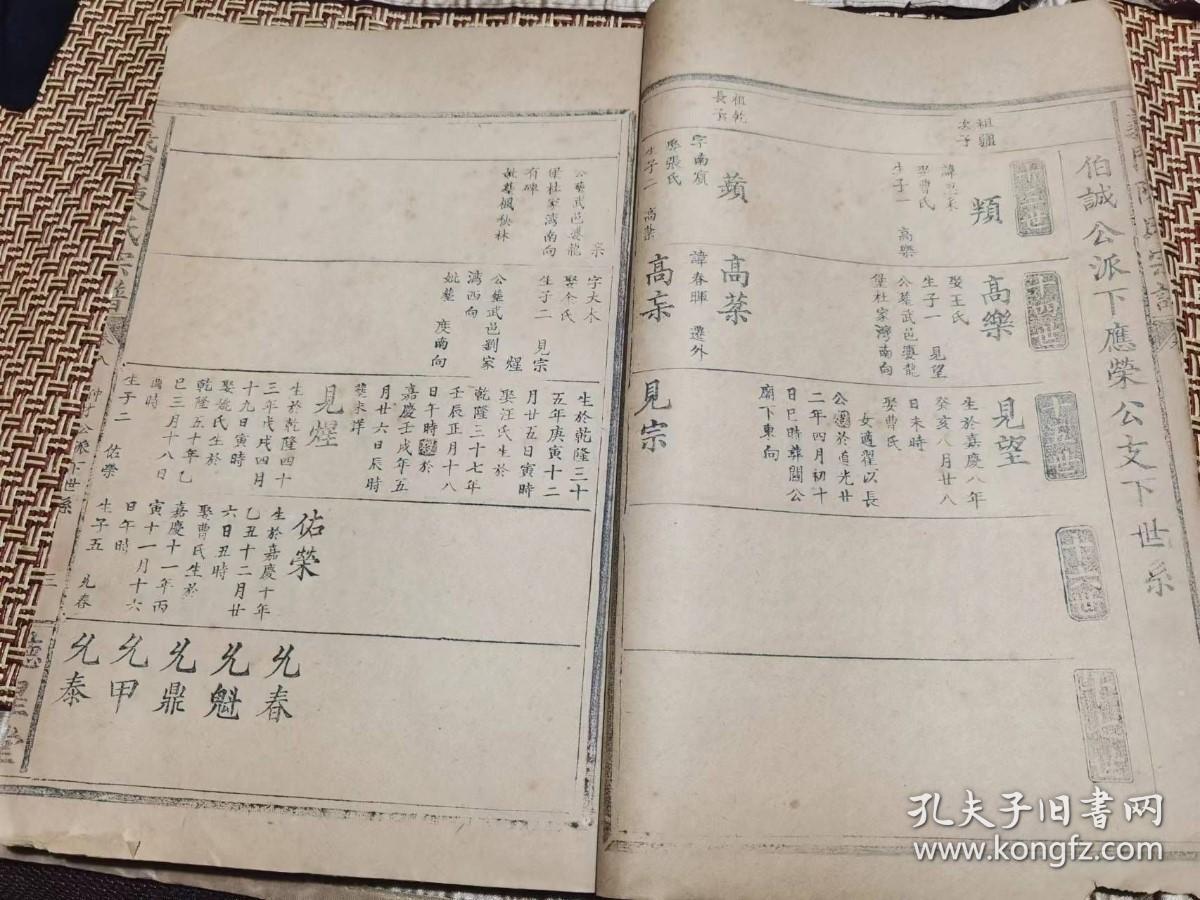 伯誠公派下應榮公支下世系
祖疆
次子
頖
娶曹氏
生子一 高樂
高樂
娶王氏
生子一 見望
公墓武邑婆龍
堡杜家灣南向
見望
生於嘉慶八年
癸亥八月廿八
日未時
娶曹氏
女適翟以長
於道光廿
二年四月初十
日巳時葬關公
廟下東向
祖乾
長子
蘋
字南濱
娶張氏
生子二 高葉
高葉
諱春暉 遷外
高宗
見宗
宗
公墓武邑婆龍
堡杜家灣南向
有碑
妣墓楓秋林
字大木
娶余氏
生子二 見宗
煋
公墓武邑劉家
灣西向
妣墓 度南向
生於乾隆三十
五年庚寅十二
月廿五日寅時
娶汪氏生於
乾隆三十七年
壬辰正月十八
日午時 於
嘉慶壬戌年五
月廿六日辰時
見煋
生於乾隆四十
三年戊戌四月
十九日寅時
娶姚氏生於
乾隆五十年乙
巳三月十八日
酉時
生子二 佑榮
佑榮
生於嘉慶十年
乙丑十二月廿
六日丑時
娶曹氏生於
嘉慶十一年丙
寅十一月十六
日午時
生子五 兆春
兆春
兆魁
兆鼎
兆甲
兆泰
三
孔夫子旧书网
www.kongfz.com